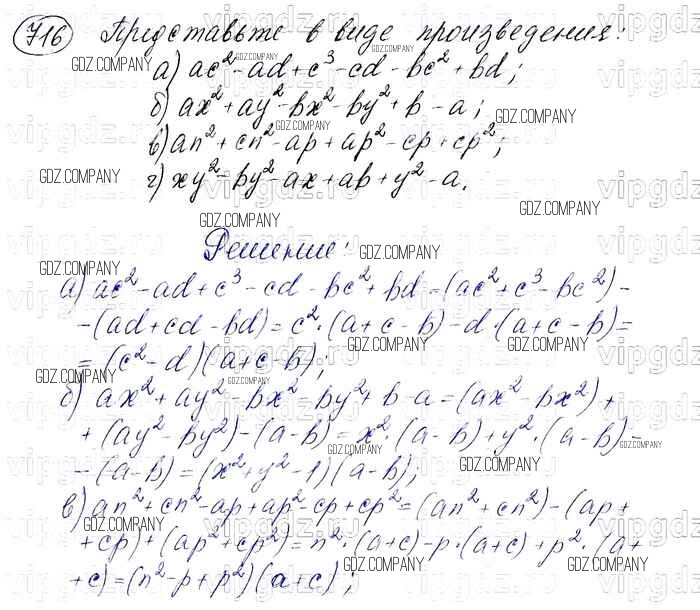 716 Представьте в виде произведения:
а) ac² - ad + c³ - cd - bc² + bd;
б) ax² + ay² - bx² - by² + b - a;
в) an² + cn² - ap + ap² - cp + cp²;
г) xy² - by² - ax + ab + y² - a.
Решение:
а) ac² - ad + c³ - cd - bc² + bd = (ac² + c³ - bc²) -
- (ad + cd - bd) = c² · (a + c - b) - d · (a + c - b) =
= (c² - d)(a + c - b);
б) ax² + ay² - bx² - by² + b - a = (ax² - bx²) +
+ (ay² - by²) - (a - b) = x² · (a - b) + y² · (a - b) -
- (a - b) = (x² + y² - 1)(a - b);
в) an² + cn² - ap + ap² - cp + cp² = (an² + cn²) - (ap +
+ cp) + (ap² + cp²) = n² · (a + c) - p · (a + c) + p² · (a +
+ c) = (n² - p + p²)(a + c);